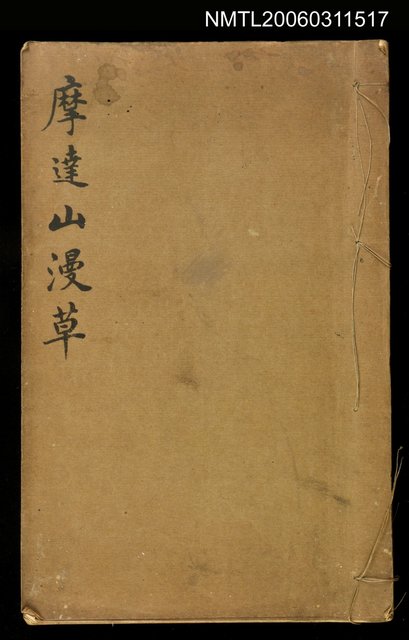 NMTL20060311517
摩達山漫草